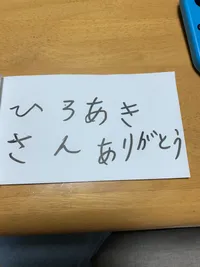 ひろあき
さんありがとう